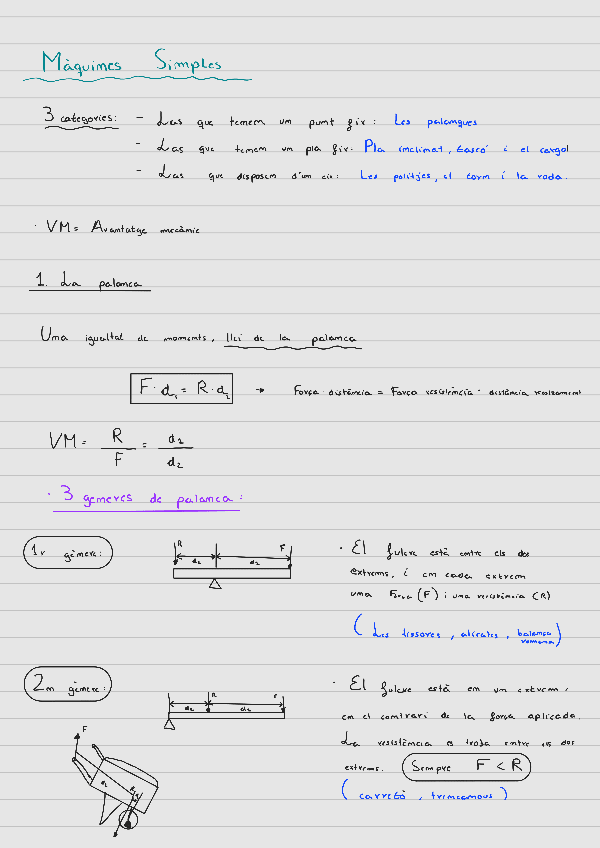 Màquines Simples
3 categories: - Las que tenem un punt fix: Les palanques
- Las que tenem un pla fix. Pla inclinat, tascó i el cargol
- Las que disposem d'un eix: Les politjes, el torn i la roda.
· VM = Avantatge mecànic
1. La palanca
Una igualtat de moments, llei de la palanca
F · d₁ = R · d₂ → Força · distància = Força resistència · distància
VM = R/F = d₂/d₂
· 3 generes de palanca:
1r gènere:
R F
d₂ d₂
· El fulcre està entre els dos
extrems, i en cada extrem
una Força (F) i una resistència (R)
(Les tisores, alicates, balança romana)
2n gènere:
R F
d₂ d₂
· El fulcre està em un extrem,
em el contrari de la força aplicada.
La resistència es troba entre els dos
extrems. Sempre F < R
(carretó, trencanous)
F